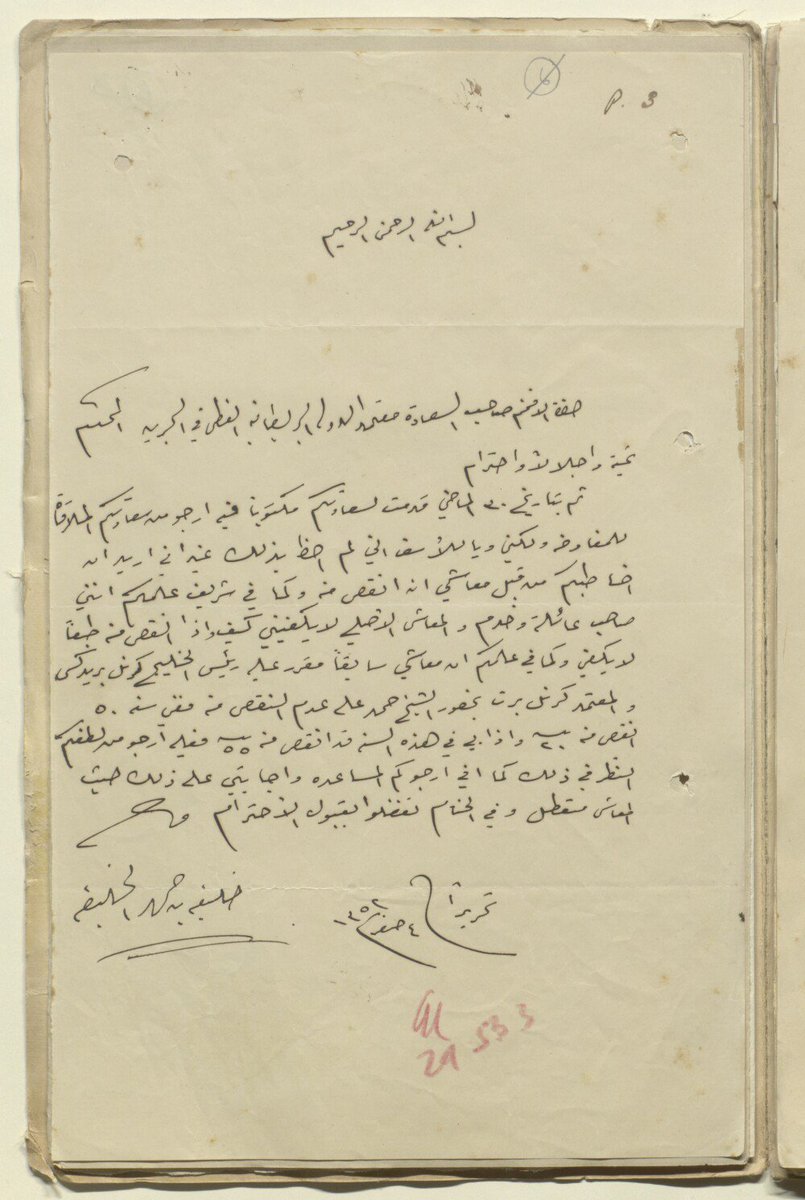 6
P. 3
بسم الله الرحمن الرحيم
حضرة الافخم صاحب السعادة معتمد الدولة البريطانية العظمى في البحرين المحترم
تحية واجلالا واحترام
ثم بتاريخ ٣٠ الماضي قدمت لسعادتكم مكتوبا فيه ارجو من سعادتكم الملاقاة
للمفاوضه ولكني وياللأسف اني لم احظ بذلك غير اني اريد ان
اخاطبكم من قبل معاشي انه انقص منه وكما في شريف علمكم انني
صاحب عائلة وخدم والمعاش الاصلي لا يكفيني كيف واذا انقص منه طبعا
لا يكفي وكما في علمكم ان معاشي سابقا مقرر عليه رئيس الخليج كرنل بريدكس
والمعتمد كرنل برت بحضور الشيخ حمد على عدم النقص منه فقي سنه ٥٠
انقص منه ٢٠ واذا بي في هذه السنه قد انقص منه ٥٥ فعليه ارجو من لطفكم
النظر في ذلك كما اني ارجوكم المساعده واجابتي على ذلك حيث
المعاش متعطل وفي الختام تفضلوا بقبول الاحترام
تحريرا
٤ صفر ١٣٥٢
خليفه بن حمد الخليفه
29 5 33